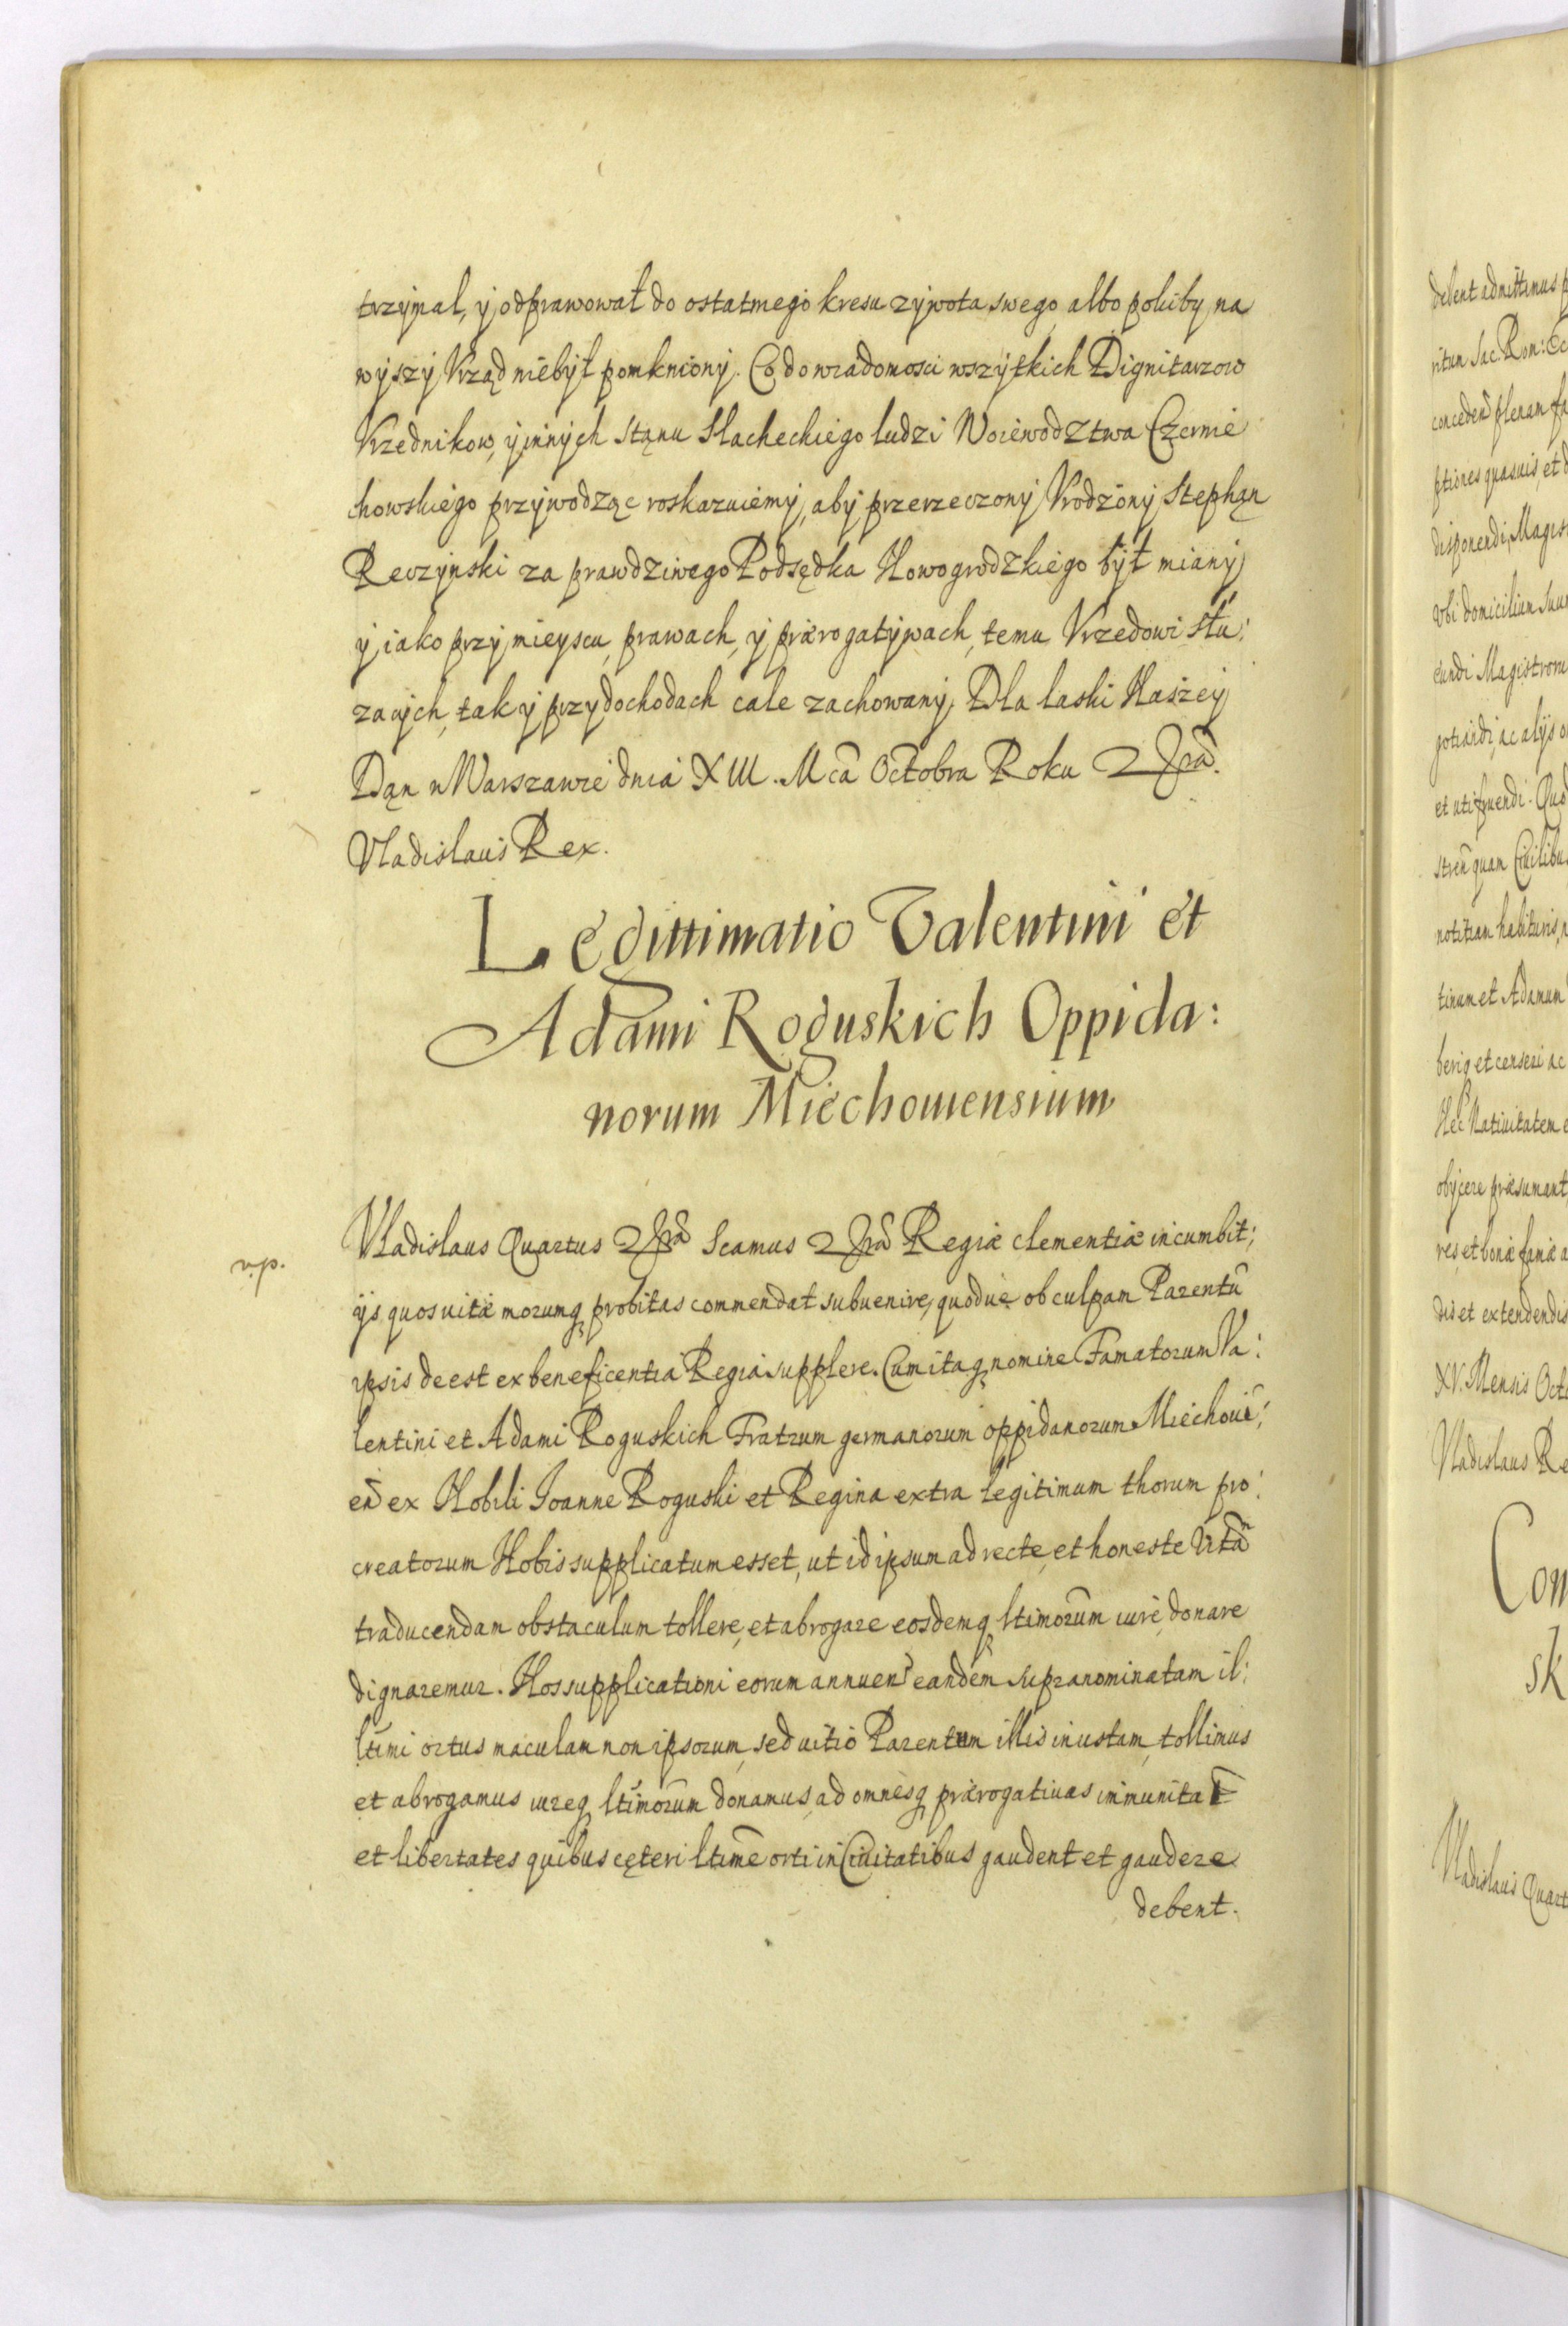 trzymal, y odprawował do ostatniego kresu zywota swego albo pokiby na
wyszy Vrząd niebył pomkniony. Co do wiadomosci wszytkich Dignitarzow
Vrzednikow, y innych stąnu Slacheckiego ludzi Woiewodztwa Czernie
chowskiego przywodząc roskazuiemy, aby przerzeczony Vrodzony Stephąn
Reczynski za prawdziwego Podsędka Nowogrodzkiego był miany
y iako przy mieyscu, prawach, y prærogatywach, temu Vrzedowi słu:
zacych, tak y przy dochodach cale zachowany, Dla laski Naszey
Dąn w Warszawie dnia XIII. Mca Octobra Roku
Vladislaus Rex.
Legittimatio Valentini et
Adami Roguskich Oppida:
norum Miechouiensium
v.p.
Vladislaus Quartus Scamus Regiæ clementiæ incumbit;
ijs quos uitæ morumq probitas commendat subuenire, quodue ob culpam Parentũ
ipsis deest ex beneficentia Regia supplere. Cum itaq nomine Famatorum Va:
lentini et Adami Roguskich Fratrum germanorum oppidanorum Miechoui:
eñ ex Nobili Joanne Roguski et Regina extra legitimum thorum pro:
creatorum Nobis supplicatum esset, ut id ipsum ad recte, et honeste Vitã
traducendam obstaculum tollere, et abrogare eosdemq ltimorum iure donare
dignaremur. Nos supplicationi eorum annuen eandem supranominatam il:
ltimi ortus maculam non ipsorum, sed uitio Parentum illis inustam, tollimus
et abrogamus iureq ltimorum donamus, ad omnesq prærogatiuas immunitat
et libertates quibus cęteri ltime orti in Ciuitatibus gaudent et gaudere
debent.
debent admittimus
ritum Sac. Rom: Ec
conceden plenam fa
ptiores quasuis, et d
disponendi, Magist
Vbi domicilium suum
cundi Magistrorum
gotiandi, ac alijs o
et utifruendi. Quod
stren quam Ciuilibu
notitiam habituris,
tinum et Adamum
beriq et censeri ac
Nec Natiuitatem e
obijcere præsumant
res, et bonæ famæ a
dis et extendendis
XV. Mensis Octo
Vladislaus Re
Com
sk
Vladislaus Quart